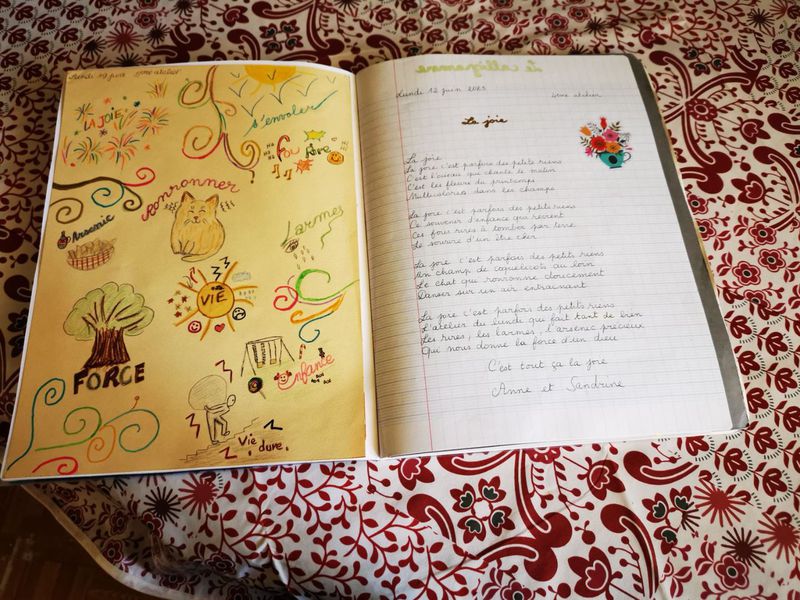 Lundi 19 juin 5ème atelier
LA JOIE
s'envoler
Fou Rêve
Ronronner
Arsenic
Larmes
VIE
FORCE
Enfance
Vie dure
Le calligramme
Lundi 12 juin 2023
4ème atelier
La joie
La joie
La joie c'est parfois des petits riens
C'est l'oiseau qui chante le matin
C'est les fleurs du printemps
Multicolores dans les champs
La joie c'est parfois des petits riens
Ce souvenir d'enfance qui revient
Ces fous rires à tomber par terre
Le sourire d'un être cher
La joie c'est parfois des petits riens
Un champ de coquelicots au loin
Le chat qui ronronne doucement
Danser sur un air entrainant
La joie c'est parfois des petits riens
L'atelier du lundi qui fait tant de bien
Les rires, les larmes, l'arsenic précieux
Qui nous donne la force d'un dieu
C'est tout ça la joie
Anne et Sandrine